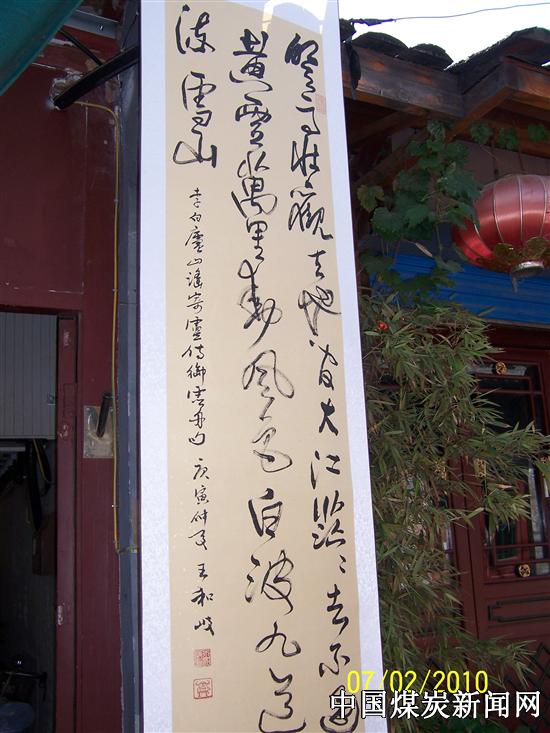 登高壮觀天地间大江茫茫去不還
黄雲萬里動風色白波九道
流雪山
李白廬山謠寄盧侍御虚舟句 庚寅仲夏 王和岐
07/02/2010
中国煤炭新闻网